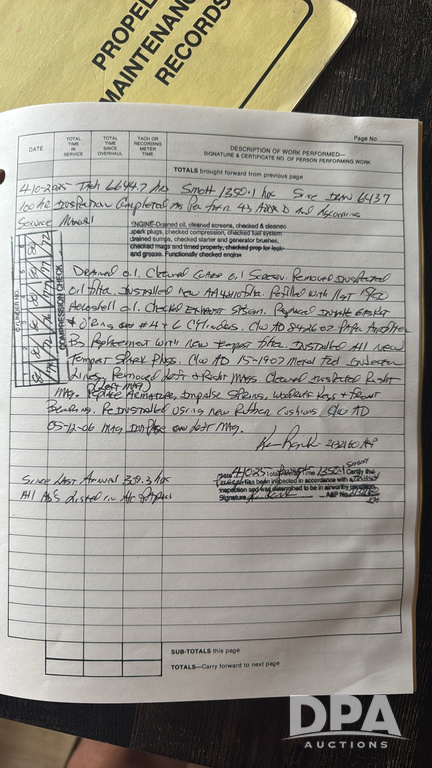 PROPEL
MAINTENANC
RECORDS
Page No.
DATE
TOTAL TIME IN SERVICE
TOTAL TIME SINCE OVERHAUL
TACH OR RECORDING METER TIME
DESCRIPTION OF WORK PERFORMED—
SIGNATURE & CERTIFICATE NO. OF PERSON PERFORMING WORK
TOTALS brought forward from previous page
4-10-2025 Tach 6644.7 hrs SMOH 1350.1 hrs Since IRAN 643.7
100 hr Inspection Completed as Per Farm 43 APPX D and
Service Manual
ENGINE-Drained oil, cleaned screens, checked & cleaned
spark plugs, checked compression, checked fuel system
drained sumps, checked starter and generator brushes,
checked mags and timed properly, checked prep for leak-
and grease. Functionally checked engine
CYLINDER NO.
COMPRESSION CHECK
Drained oil. Cleaned oil Screen. Removed Inspected
oil filter. Installed new filter. Refilled with
Aeroshell oil. Checked Exhaust System. Replaced Intake Gasket
& O'Ring on #4 & 6 Cylinders. C/W AD 84-26-02 Paper Air filter
By Replacement with new filter. Installed All New
Tempest Spark Plugs. C/W AD 15-19-07 Metal Fuel Injector
Lines. Removed Left & Right Mags Cleaned Inspected Right
Mag. (Left Mag) Replace Armature, Impulse Spring, Woodruff Keys & Front
Bearing. Reinstalled using new Rubber Cushions. C/W AD
05-12-06 Mag Impulse on Left Mag.
2132160 A&P
Since Last Annual 30.3 hrs
All AD's Listed in A/C
Date 4-10-25 Total Time 1350.1 SMOH I certify the
has been inspected in accordance with a
inspection and was determined to be in airworthy condition.
Signature A&P No.
SUB-TOTALS this page
TOTALS—Carry forward to next page
DPA
AUCTIONS